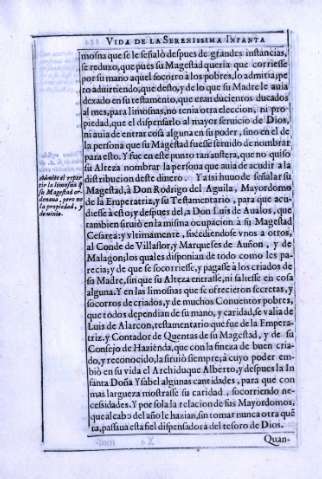 VIDA DE LA SERENISSIMA INFANTA
mosna que se le señalò despues de grandes instancias,
se reduxo, que pues su Magestad queria que corriesse
por su mano aquel socorro a los pobres, lo admitia, pe
ro aduirtiendo, que desto, y de lo que su Madre le auia
dexado en su testamento, que eran ducientos ducados
al mes, para limosnas, no tenia otra eleccion, ni pro
piedad, que el dispensarlo al mayor seruicio de Dios,
ni auia de entrar cosa alguna en su poder, sino en el de
la persona que su Magestad fuesse seruido de nombrar
para esto. Y fue en este punto tan austera, que no quiso
su Alteza nombrar la persona que auia de acudir a la
distribucion deste dinero. Y assi huuo de señalar su
Magestad, à Don Rodrigo del Aguila, Mayordomo
de la Emperatriz, y su Testamentario, para que acu-
diesse à esto; y despues del, a Don Luis de Aualos, que
tambien siruiò en la misma ocupacion a su Magestad
Cesarea: y vltimamente, sucediendose vnos a otros,
al Conde de Villaflor, y Marqueses de Auñon, y de
Malagon; los quales disponian de todo como les pa-
recia; y de que se socorriesse, y pagasse à los criados de
su Madre, sin que su Alteza entrasse, ni saliesse en cosa
alguna. Y en las limosnas que se ofrecieron secretas, y
socorros de criados, y de muchos Conuentos pobres,
que todos dependian de su mano, y caridad, se valia de
Luis de Alarcon, testamentario que fue de la Empera-
triz, y Contador de Quentas de su Magestad, y de su
Consejo de Hazienda, que con la fineza de buen cria-
do, y reconocido, la siruiò siempre; à cuyo poder em-
biò en su vida el Archiduque Alberto, y despues la In
fanta Doña Ysabel algunas cantidades, para que con
mas largueza mostrasse su caridad, socorriendo ne-
cessidades. Y por sola la relacion de sus Mayordomos,
que al cabo del año le hazian, sin tomar nunca otra quē
ta, passaua esta fiel dispensadora del tesoro de Dios.
Quan-
Admite el repar
tir la limosna q̃
su Magestad or-
denaua, pero no
la propiedad, y
dominio.